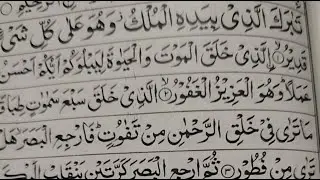 تَبٰرَكَ الَّذِیْ بِیَدِهِ الْمُلْكُ ؗ وَهُوَ عَلٰی كُلِّ شَیْءٍ
قَدِیْرُ ۙ﴿۱﴾ الَّذِیْ خَلَقَ الْمَوْتَ وَ الْحَیٰوةَ لِیَبْلُوَكُمْ اَیُّكُمْ اَحْسَنُ
عَمَلًا ؕ وَهُوَ الْعَزِیْزُ الْغَفُوْرُ ۙ﴿۲﴾ الَّذِیْ خَلَقَ سَبْعَ سَمٰوٰتٍ طِبَاقًا
مَا تَرٰی فِیْ خَلْقِ الرَّحْمٰنِ مِنْ تَفٰوُتٍ ؕ فَارْجِعِ الْبَصَرَ ۙ هَلْ
تَرٰی مِنْ فُطُوْرٍ ﴿۳﴾ ثُمَّ ارْجِعِ الْبَصَرَ كَرَّتَیْنِ یَنْقَلِبْ اِلَیْكَ